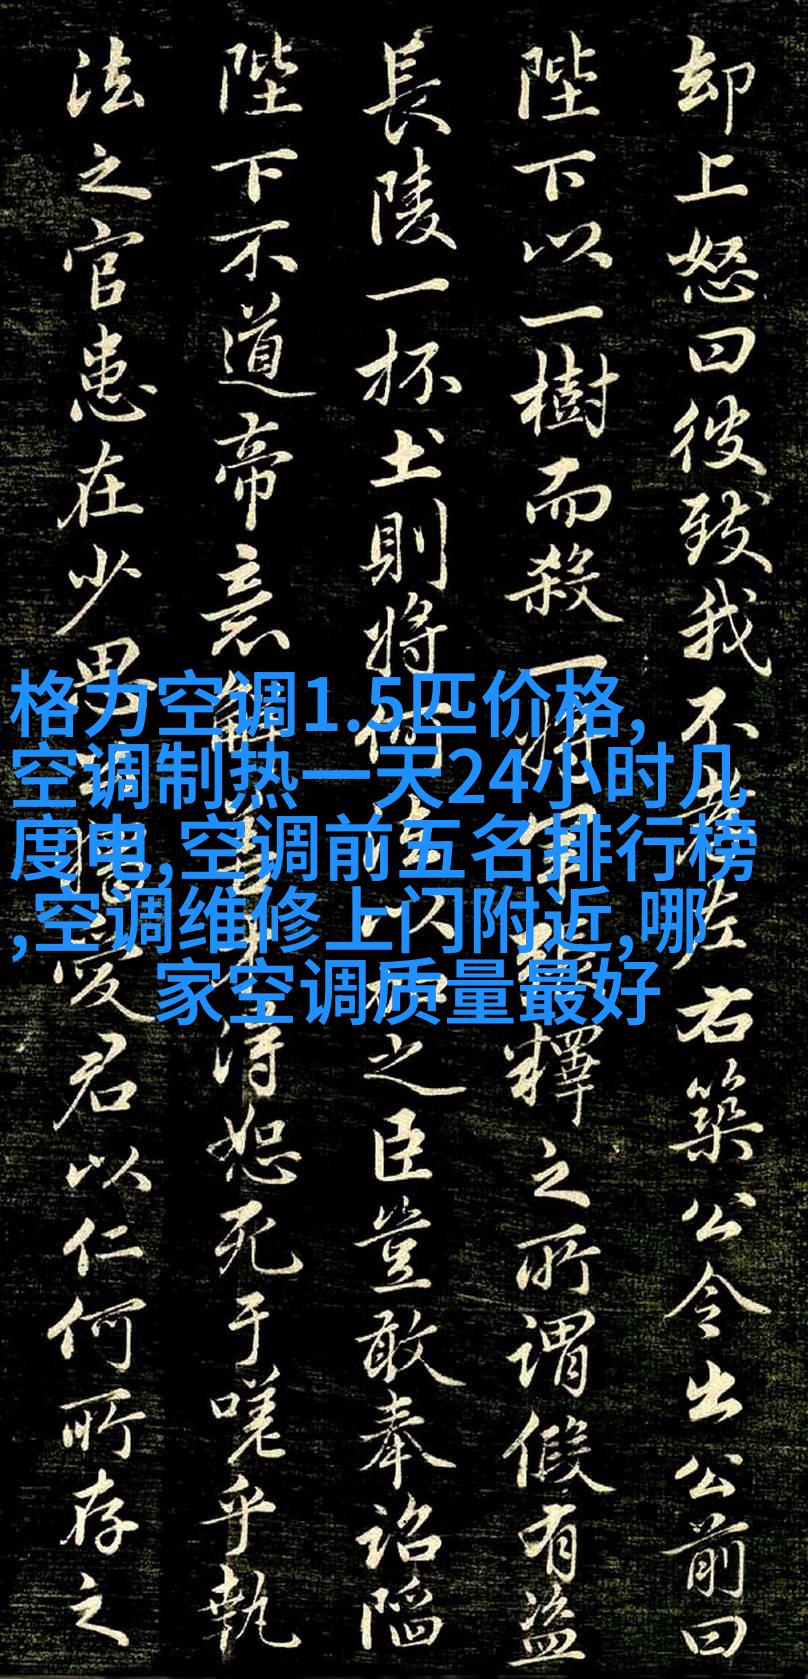 却上怒曰彼致我不左右築公令出公前曰
陛下以一樹而殺一将軍張釋之所謂假有盜
長陵一杯土則將何法以加之臣豈敢奉詔陷
陛下不道帝意解得恕死于嗟乎執
法之官患在少恩愛君以仁何所存之
格力空调1.5匹价格,
空调制热一天24小时几
度电,空调前五名排行榜
,空调维修上门附近,哪
家空调质量最好